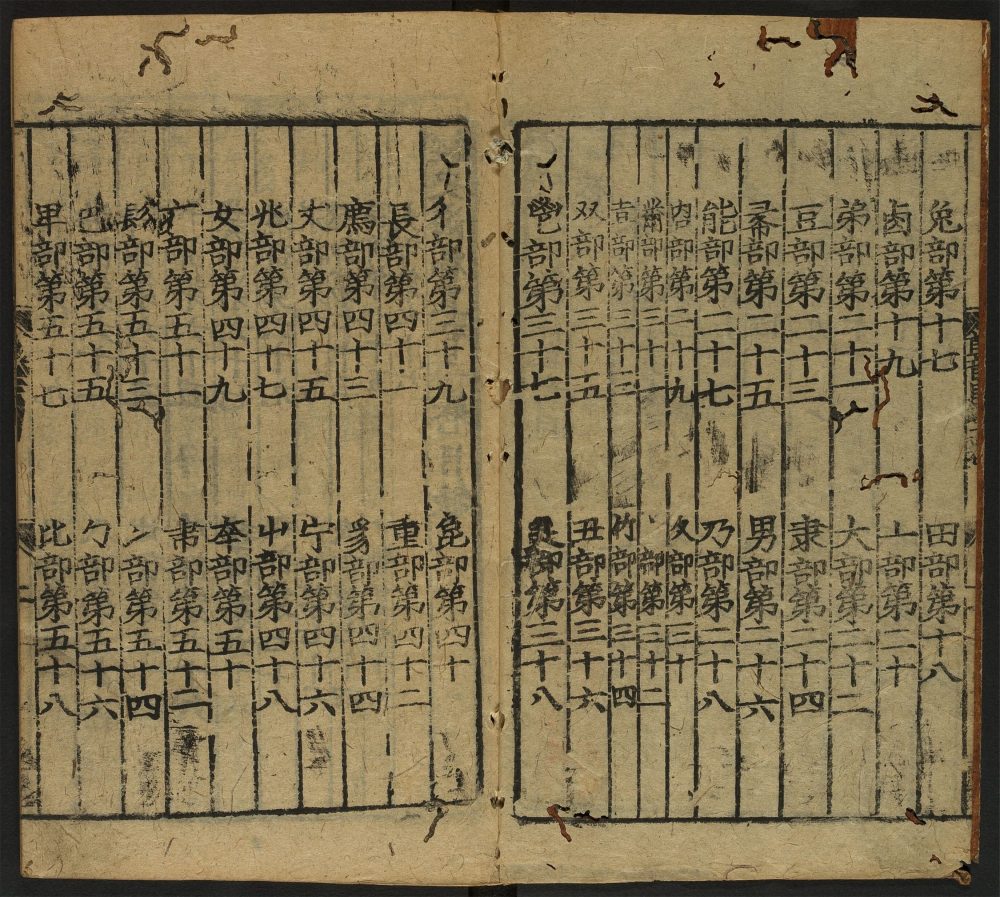 兔部第十七　田部第十八
卥部第十九　丄部第二十
弟部第二十一　大部第二十二
豆部第二十三　隶部第二十四
部第二十五　男部第二十六
能部第二十七　乃部第二十八
部第二十九　久部第三十
黹部第三十一　部第三十二
部第三十三　竹部第三十四
双部第三十五　丑部第三十六
鬯部第三十七　部第三十八
彳部第三十九　㲋部第四十
長部第四十一　重部第四十二
廌部第四十三　豸部第四十四
丈部第四十五　宁部第四十六
兆部第四十七　屮部第四十八
女部第四十九　夲部第五十
亠部第五十一　部第五十二
髟部第五十三　部第五十四
巴部第五十五　勹部第五十六
甲部第五十七　比部第五十八